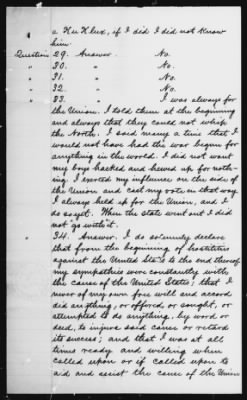 a Ku Klux, if I did I did not know
him.
Question 29. Answer. No.
" 30. " No.
" 31. " No.
" 32. " No.
" 33. I was always for
the Union. I told them at the beginning
and always that they could not whip
the North. I said many a time that I
would not have had the war begun for
anything in the world. I did not want
my boys hacked and hewed up for noth-
ing. I exerted my influence on the side of
the Union and cast my vote in that way.
I always held up for the Union, and I
do so yet. When the state went out I did
not go with it.
" 34. Answer. I do solemnly declare
that from the beginning of hostilities
against the United States to the end thereof
my sympathies were constantly with
the cause of the United States; that I
never of my own free will and accord
did anything, or offered, or sought, or
attempted to do anything, by word or
deed, to injure said cause or retard
its success; and that I was at all
times ready and willing when
called upon or if called upon to
aid and assist the cause of the Union